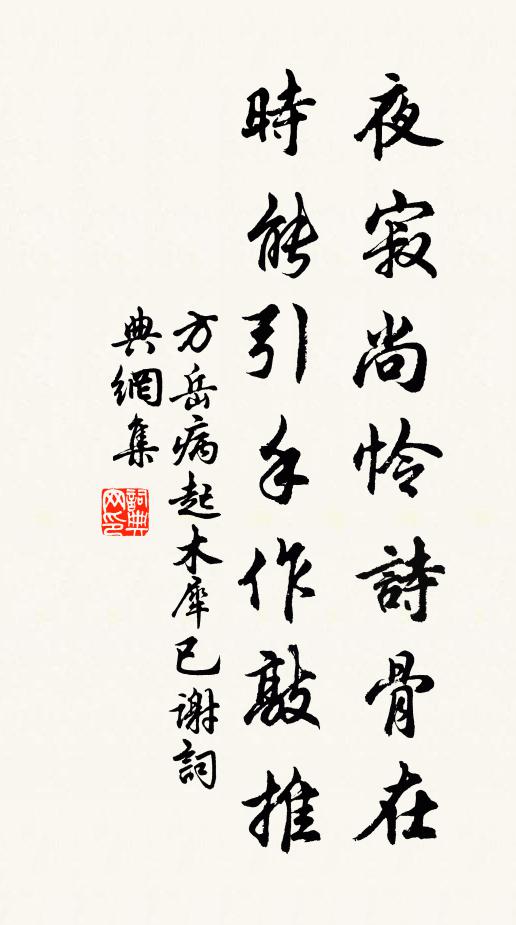 夜寂尚怜詩骨在
時能引手作敲推
方岳病起木犀已謝詞
典網集
詞典网印